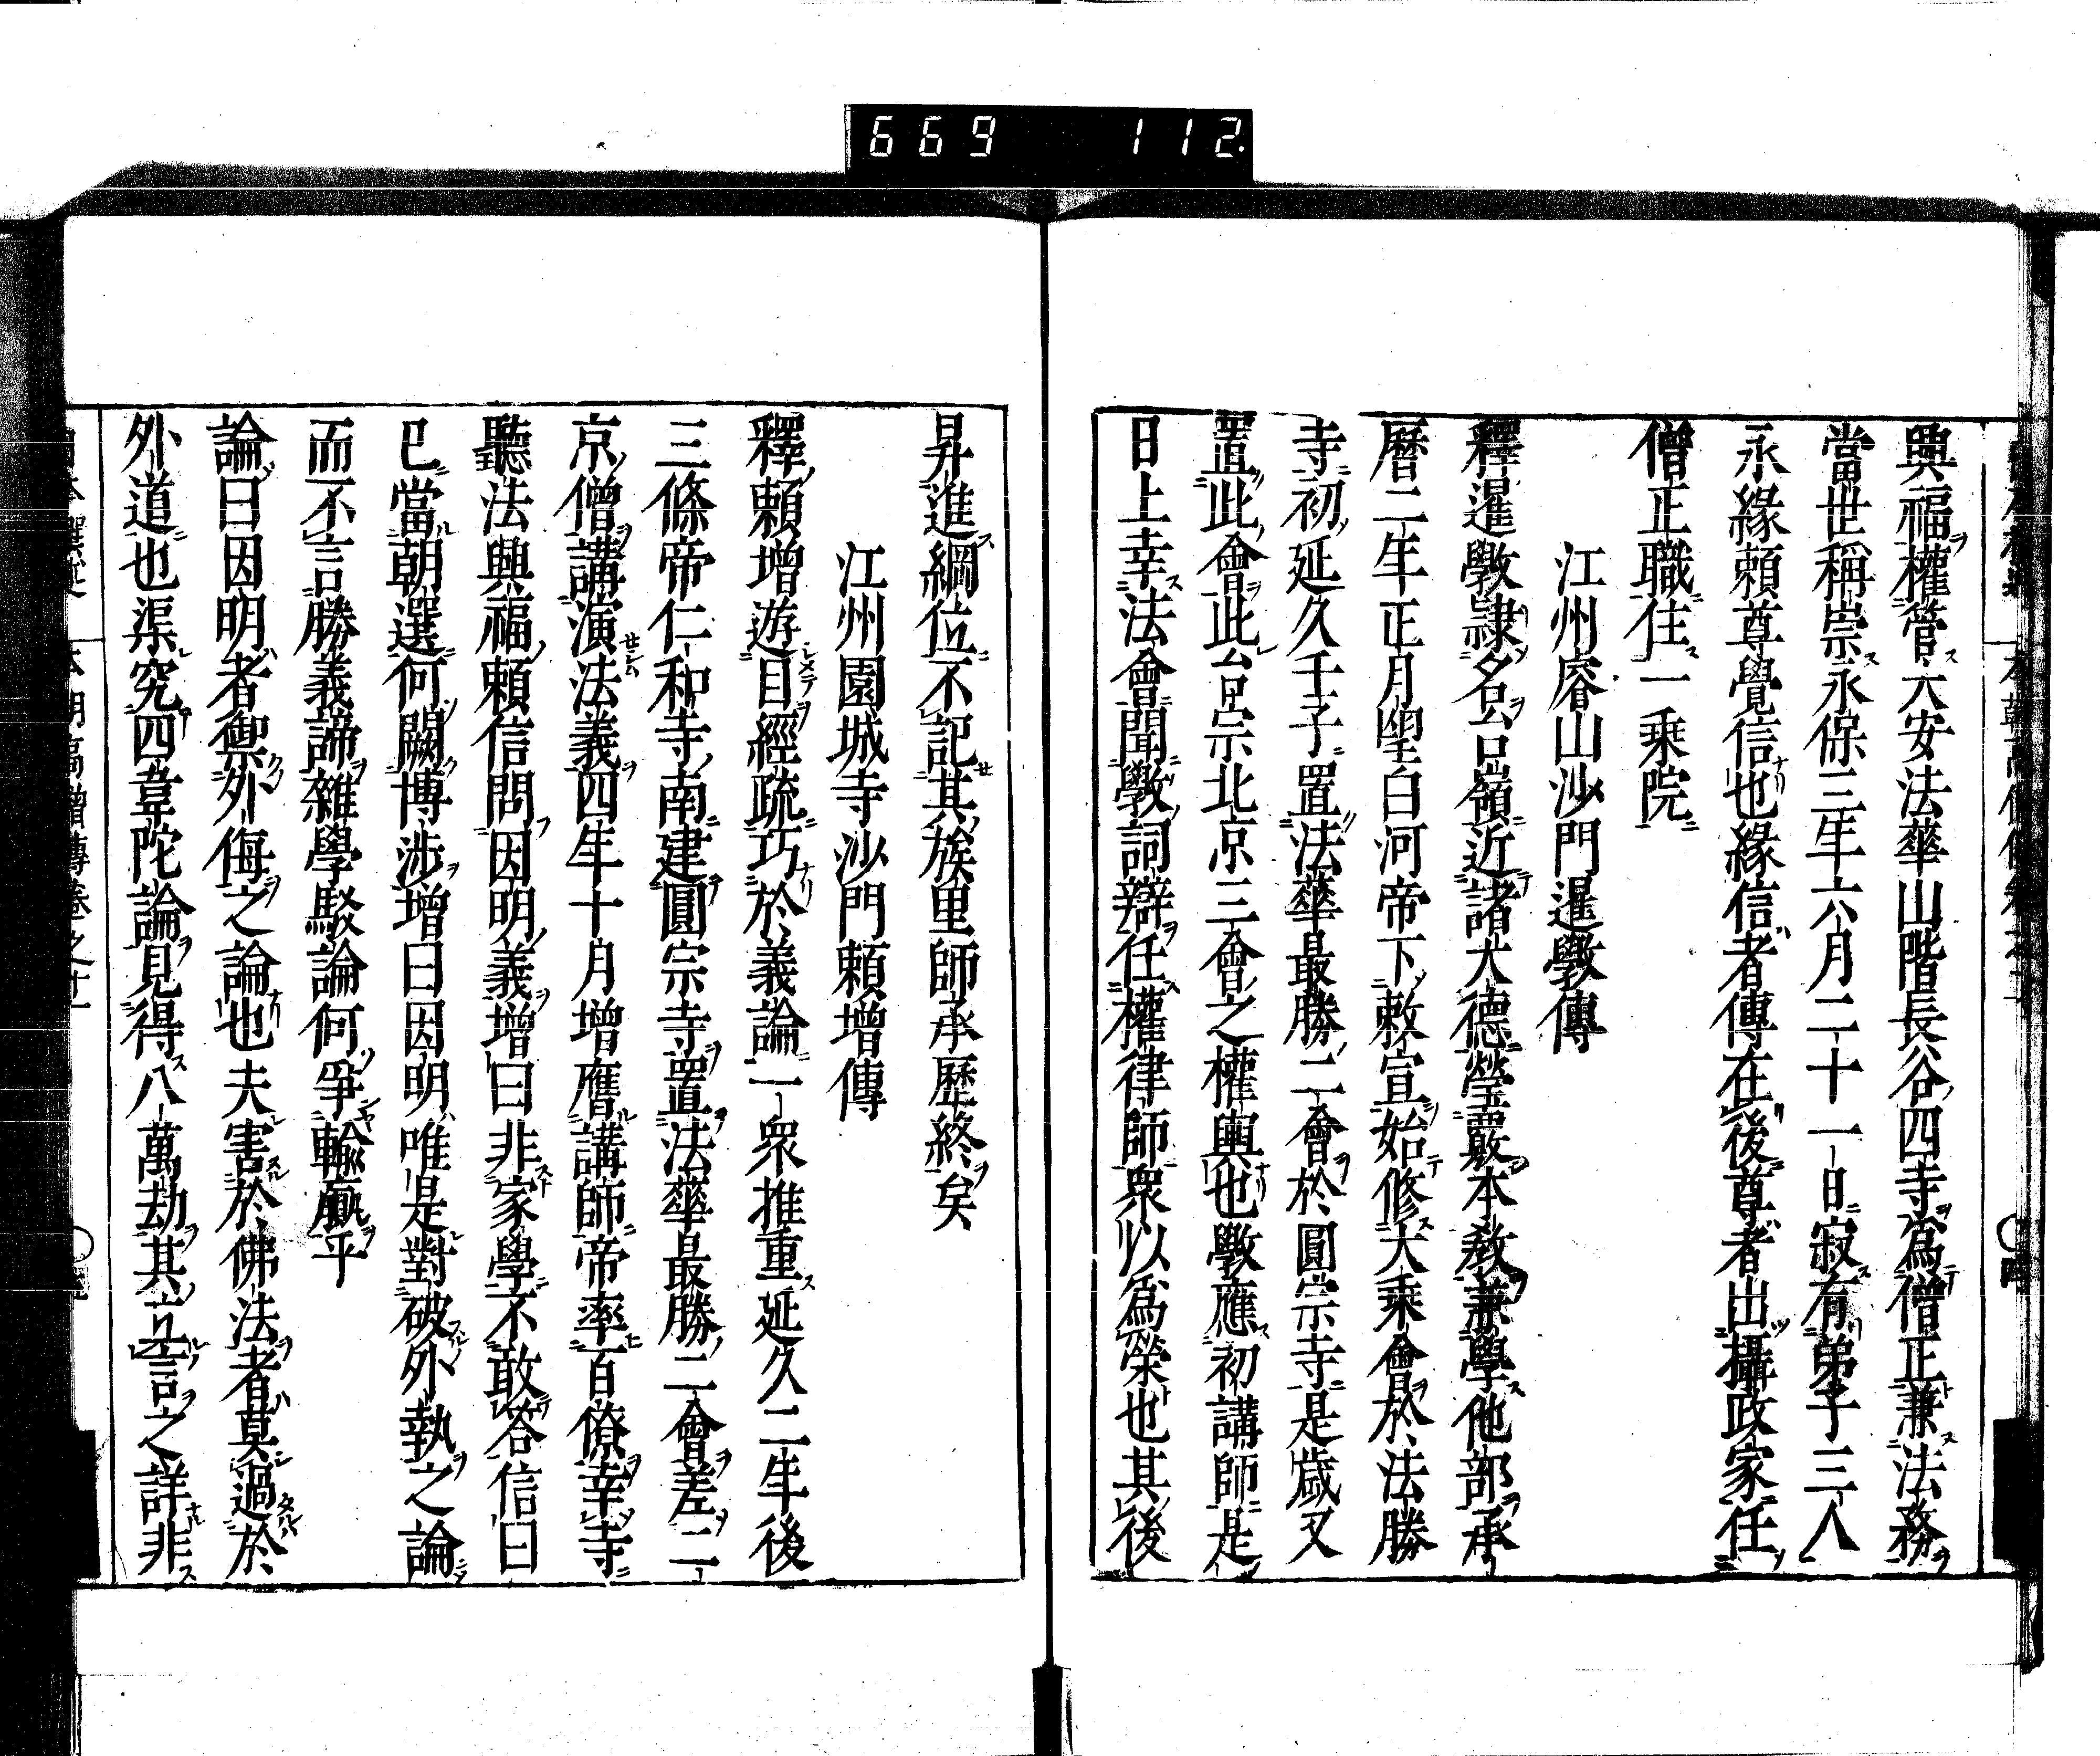 669 112
興福權管大安法華山階長谷四寺爲僧正兼法務
當世稱崇永保三年六月二十一日寂有弟子三人
永緣賴尊覺信也緣信者傳在後尊者出攝政家任
僧正職住一乘院
江州睿山沙門暹斅傳
釋暹斅隷名台嶺近諸大德瑩覈本教兼學他部承
曆二年正月望白河帝下敕宣始修大乘會於法勝
寺初延久壬子置法華最勝二會於圓宗寺是歲又
置此會此台宗北京三會之權輿也斅應初講師是
日上幸法會聞斅詞辯任權律師衆以爲榮也其後
昇進綱位不記其族里師承歷終矣
江州園城寺沙門賴增傳
釋賴增遊目經疏巧於義論一衆推重延久二年後
三條帝仁和寺南建圓宗寺置法華最勝二會差二
京僧講演法義四年十月增膺講師帝率百僚幸寺
聽法興福賴信問因明義增曰非家學不敢答信曰
已當朝選何闕博涉增曰因明唯是對破外執之論
而不言勝義諦雜學駁論何爭輸贏乎
論曰因明者禦外侮之論也夫害於佛法者莫過於
外道也渠究四韋陀論見得八萬劫其立言之詳非